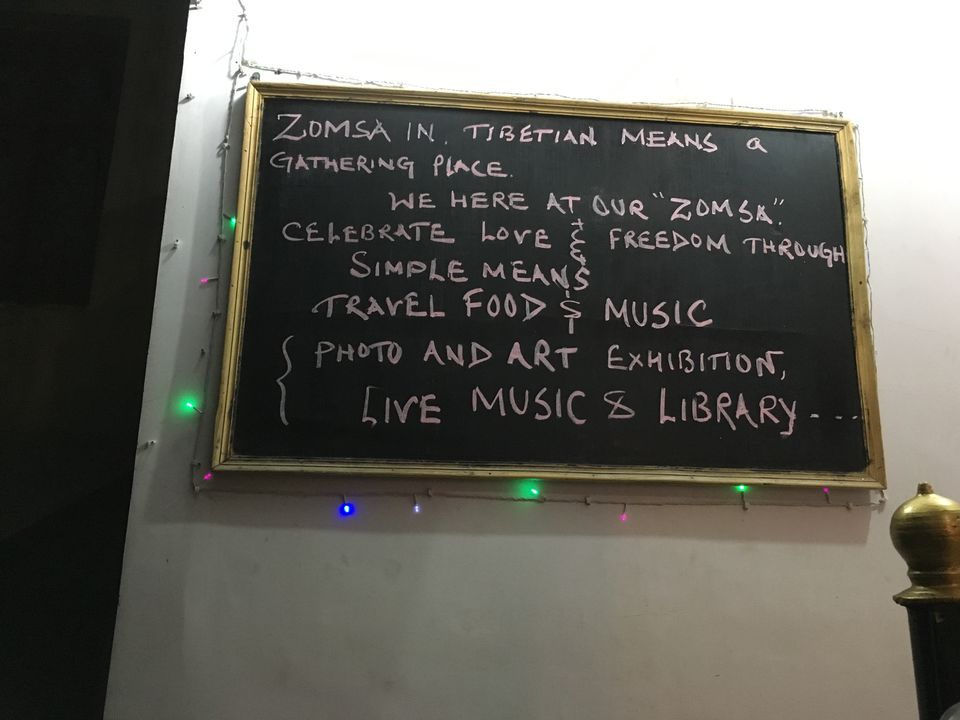 ZOMSA IN. TIBETIAN MEANS a
GATHERING PLACE.
WE HERE AT OUR "ZOMSA".
CELEBRATE LOVE & FREEDOM THROUGH
SIMPLE MEANS
TRAVEL FOOD & MUSIC
PHOTO AND ART EXHIBITION,
LIVE MUSIC & LIBRARY ----